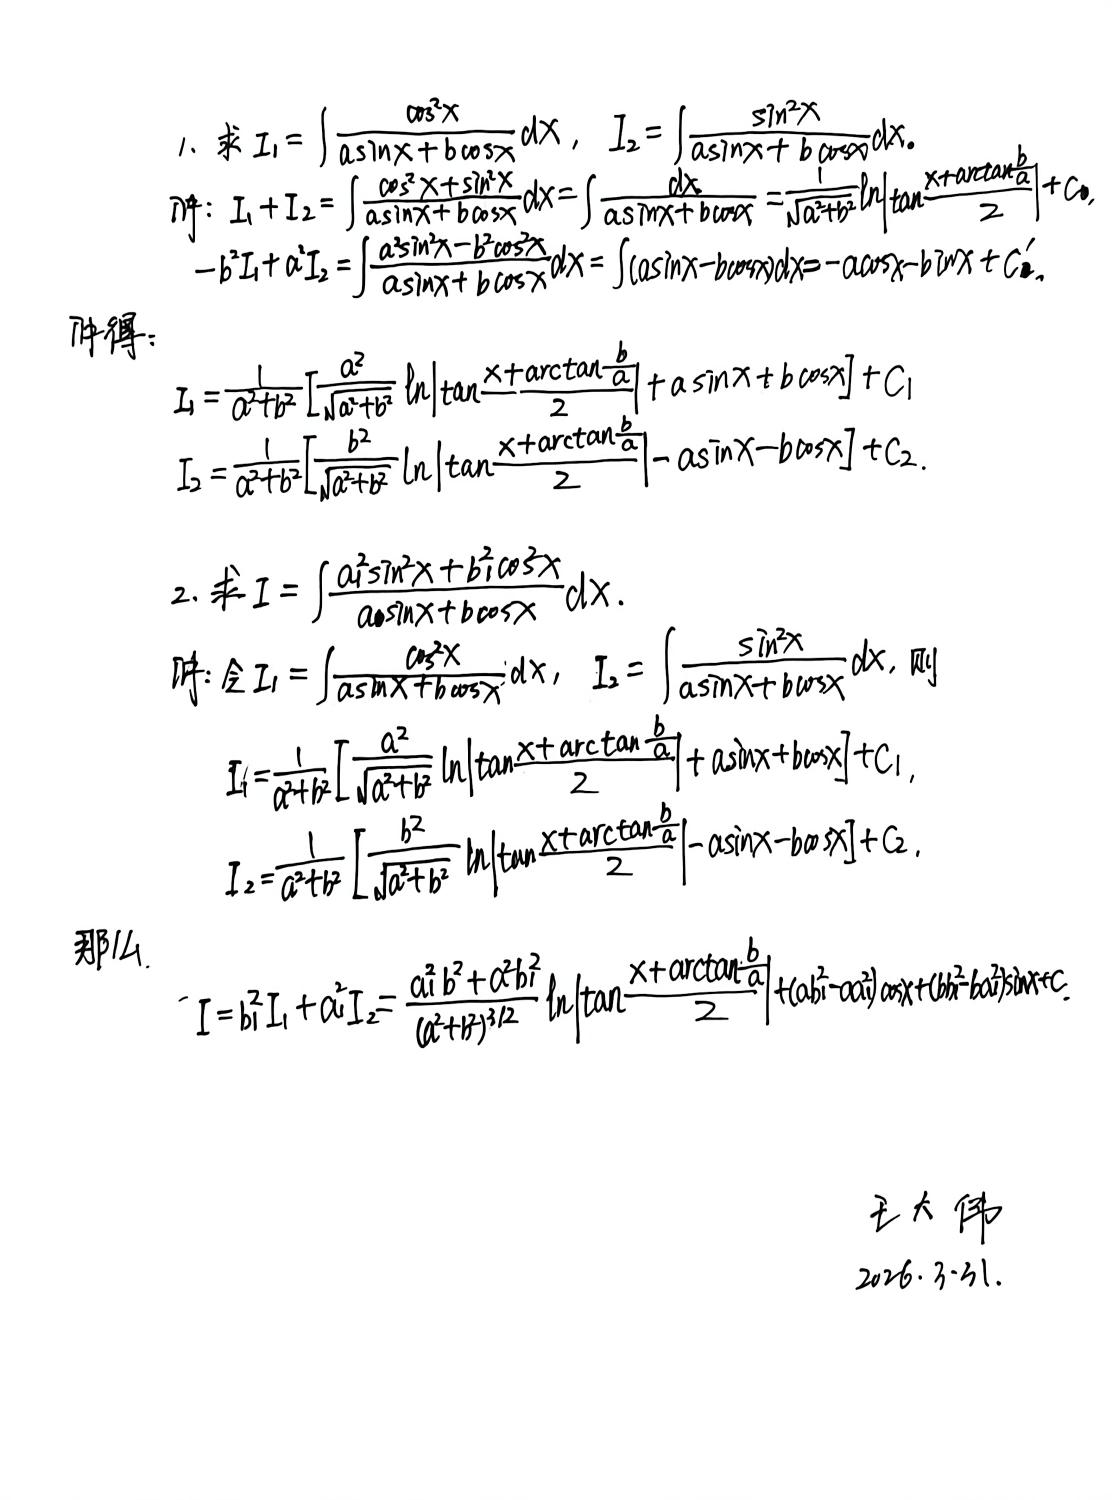 1. 求 I₁ = ∫ cos²x/(asinx + bcosx) dx, I₂ = ∫ sin²x/(asinx + bcosx) dx。
解: I₁ + I₂ = ∫ (cos²x + sin²x)/(asinx + bcosx) dx = ∫ dx/(asinx + bcosx) = 1/√(a²+b²) ln|tan (x + arctan b/a)/2| + C₀,
-b²I₁ + a²I₂ = ∫ (a²sin²x - b²cos²x)/(asinx + bcosx) dx = ∫(asinx - bcosx)dx = -acosx - bsinx + C₀′.
解得:
I₁ = 1/(a²+b²) [a²/√(a²+b²) ln|tan (x + arctan b/a)/2| + asinx + bcosx] + C₁
I₂ = 1/(a²+b²) [b²/√(a²+b²) ln|tan (x + arctan b/a)/2| - asinx - bcosx] + C₂.
2. 求 I = ∫ (a₁²sin²x + b₁²cos²x)/(asinx + bcosx) dx.
解: 令 I₁ = ∫ cos²x/(asinx + bcosx) dx, I₂ = ∫ sin²x/(asinx + bcosx) dx, 则
I₁ = 1/(a²+b²) [a²/√(a²+b²) ln|tan (x + arctan b/a)/2| + asinx + bcosx] + C₁,
I₂ = 1/(a²+b²) [b²/√(a²+b²) ln|tan (x + arctan b/a)/2| - asinx - bcosx] + C₂,
那么.
I = b₁²I₁ + a₁²I₂ = (a₁²b² + a²b₁²)/(a²+b²)^(3/2) ln|tan (x + arctan b/a)/2| + (ab₁² - aa₁²)cosx + (bb₁² - ba₁²)sinx + C.
王大伟
2026.3.31.